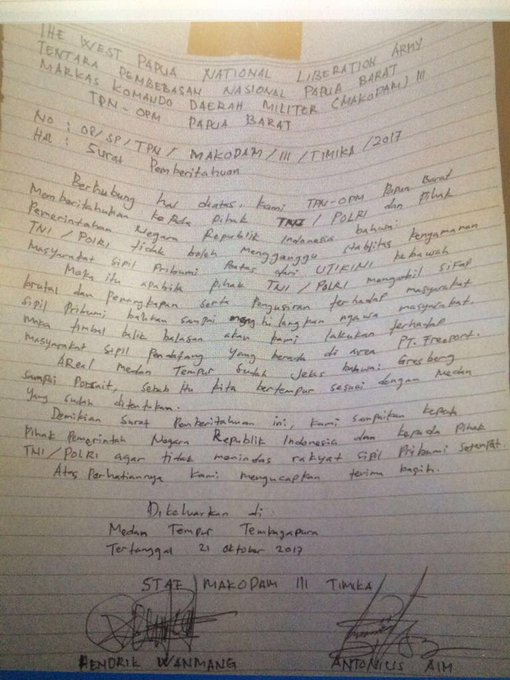 THE WEST PAPUA NATIONAL LIBERATION ARMY
TENTARA PEMBEBASAN NASIONAL PAPUA BARAT
MARKAS KOMANDO DAERAH MILITER (MAKODAM) III
TPN-OPM PAPUA BARAT
NO : OP/SP/TPN/MAKODAM/III/TIMIKA/2017
Hal : Surat Pemberitahuan
Berhubung hal diatas, kami TPN-OPM Papua Barat
Memberitahukan kepada pihak TNI/POLRI dan Pihak
Pemerintahan Negara Republik Indonesia bahwa:
TNI/POLRI tidak boleh mengganggu stablitas kenyamanan
masyarakat sipil Pribumi Batas dari UTIKINI kebawah
Maka itu apabila pihak TNI/POLRI mengambil sifat
brutal dan penangkapan serta Pengusiran terhadap masyarakat
sipil Pribumi bahkan sampai menghilangkan nyawa masyarakat.
maka timbul balik balasan akan kami lakukan terhadap
masyarakat sipil Pendatang yang berada di area PT. Freeport.
AReal medan Tempur sudah Jelas bahwa: Gresberg
sampai Porsait, sebab itu kita bertempur sesuai dengan Medan
yang sudah ditentukan.
Demikian Surat Pemberitahuan ini, kami sampaikan kepada
Pihak Pemerintah Negara Republik Indonesia dan kepada Pihak
TNI/POLRI agar tidak menindas rakyat sipil Pribumi Setempat
Atas Perhatiannya kami mengucapkan terima kasih.
Dikeluarkan di :
Medan Tempur Tembagapura
Tertanggal 21 Oktober 2017
STAF MAKODAM III TIMIKA
HENDRIK WANMANG ANTONIUS AIM